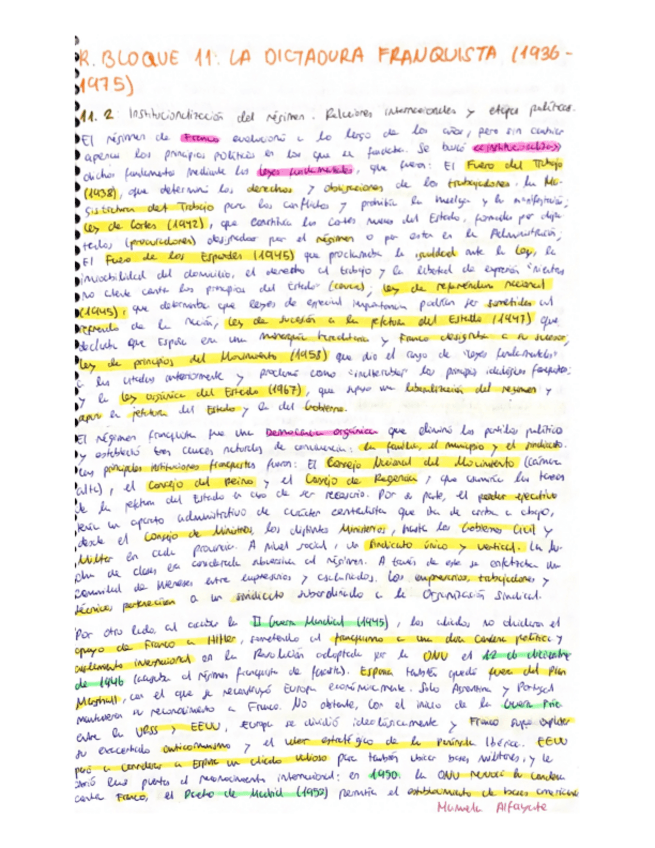 R. BLOQUE 11: LA DICTADURA FRANQUISTA (1936-
1975)
11.2 Institucionalización del régimen. Relaciones internacionales y etapas políticas.
El régimen de Franco evolucionó a lo largo de los años, pero sin cambiar
apenas los principios políticos en los que se fundaba. Se buscó
dichos fundamentos mediante las leyes fundamentales, que fueron: El Fuero del Trabajo
(1938), que determinó los derechos y obligaciones de los trabajadores. La Ma-
gistratura del Trabajo para los conflictos y prohibía la huelga y la manifestación;
Ley de Cortes (1942), que constituía las Cortes del Estado, formada por dipu-
tados (procuradores) designados por el régimen o por estar en la Administración;
El Fuero de los Españoles (1945) que proclamaba la igualdad ante la ley, la
inviolabilidad del domicilio, el derecho al trabajo y la libertad de expresión "mientras
no atente contra los principios del Estado" ; ley de referéndum nacional
(1945), que determinaba que leyes de especial importancia podían ser sometidas al
referendo de la nación, ley de sucesión a la jefatura del Estado (1947) que
declaraba que España era una monarquía y Franco designaba a su sucesor,
ley de principios del Movimiento (1958) que dio el rango de "leyes fundamentales"
a las citadas anteriormente y proclamó como los principios ideológicos franquistas;
y la ley orgánica del Estado (1967), que supuso una liberalización del régimen y
separó la jefatura del Estado y la del Gobierno.
El régimen franquista fue una Democracia orgánica que eliminó los partidos políticos
y estableció tres cauces naturales de convivencia: la familia, el municipio y el sindicato.
Las principales instituciones franquistas fueron: El Consejo Nacional del Movimiento (cámara
alta), el Consejo del Reino y el Consejo de Regencia, que asumía las tareas
de la jefatura del Estado en caso de ser necesario. Por su parte, el poder ejecutivo
tenía un aparato administrativo de carácter centralista que iba de arriba a abajo,
desde el Consejo de Ministros, los distintos Ministerios, hasta los Gobiernos Civil y
Militar en cada provincia. A nivel social, un sindicato único y vertical. La lu-
cha de clases era considerada al régimen. A través de este se
comunidad de intereses entre empresarios y asalariados. Los empresarios, trabajadores y
técnicos pertenecían a un sindicato subordinado a la Organización Sindical.
Por otro lado, al acabar la II Guerra Mundial (1945), los aliados no olvidaron el
apoyo de Franco a Hitler, sometiendo al franquismo a una dura condena política y
aislamiento internacional en la Resolución adoptada por la ONU el 12 de diciembre
de 1946 ( al régimen franquista de fascista). España también quedó fuera del Plan
Marshall, con el que se reconstruyó Europa económicamente. Solo Argentina y Portugal
mantuvieron su reconocimiento a Franco. No obstante, con el inicio de la Guerra Fría
entre la URSS y EEUU, Europa se dividió ideológicamente y Franco supo explotar
su exacerbado anticomunismo y el valor estratégico de la Península Ibérica. EEUU
pasó a considerar a España un aliado valioso para también ubicar bases militares, y le
abrió las puertas al reconocimiento internacional: en 1950 la ONU revocó la condena
contra Franco, el Pacto de Madrid (1953) permitía el establecimiento de bases americanas
Manuela Alfayate